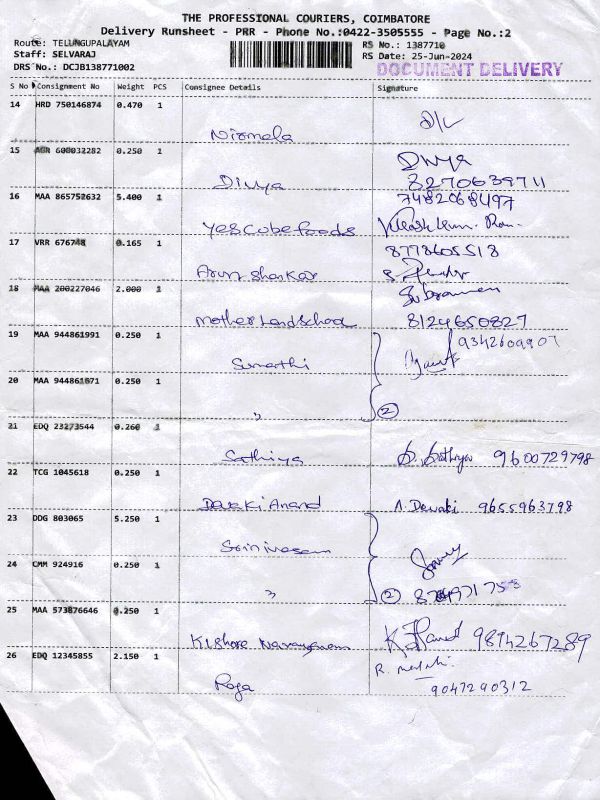 THE PROFESSIONAL COURIERS, COIMBATORE
Delivery Runsheet - PRR - Phone No.:0422-3505555 - Page No.:2
Route: TELUNGUPALAYAM
RS No.: 1387710
Staff: SELVARAJ
RS Date: 25-Jun-2024
DRS No.: DCJB138771002
DOCUMENT DELIVERY
S No Consignment No Weight PCS Consignee Details Signature
14 HRD 750146874 0.470 1
Nirmala
15 AGR 600032282 0.250 1
Divya
Divya 8270639711
16 MAA 865752632 5.400 1
7482068497
Yescubefoods
17 VRR 676748 0.165 1
8778605518
Arun Shankar
18 MAA 200227046 2.000 1
Motherland School
8124650827
19 MAA 944861991 0.250 1
9342609907
Sumathi
20 MAA 944861671 0.250 1
" 2
21 EDQ 23273544 0.260 1
Sathiya S. Sathiya 9600729798
22 TCG 1045618 0.250 1
Devaki Anand A. Dewaki 9655963798
23 DDG 803065 5.250 1
Srinivasan
24 CMM 924916 0.250 1
" 2
25 MAA 573876646 0.250 1
Kishore Narayanan 9894267289
26 EDQ 12345855 2.150 1
Roja 9047290312